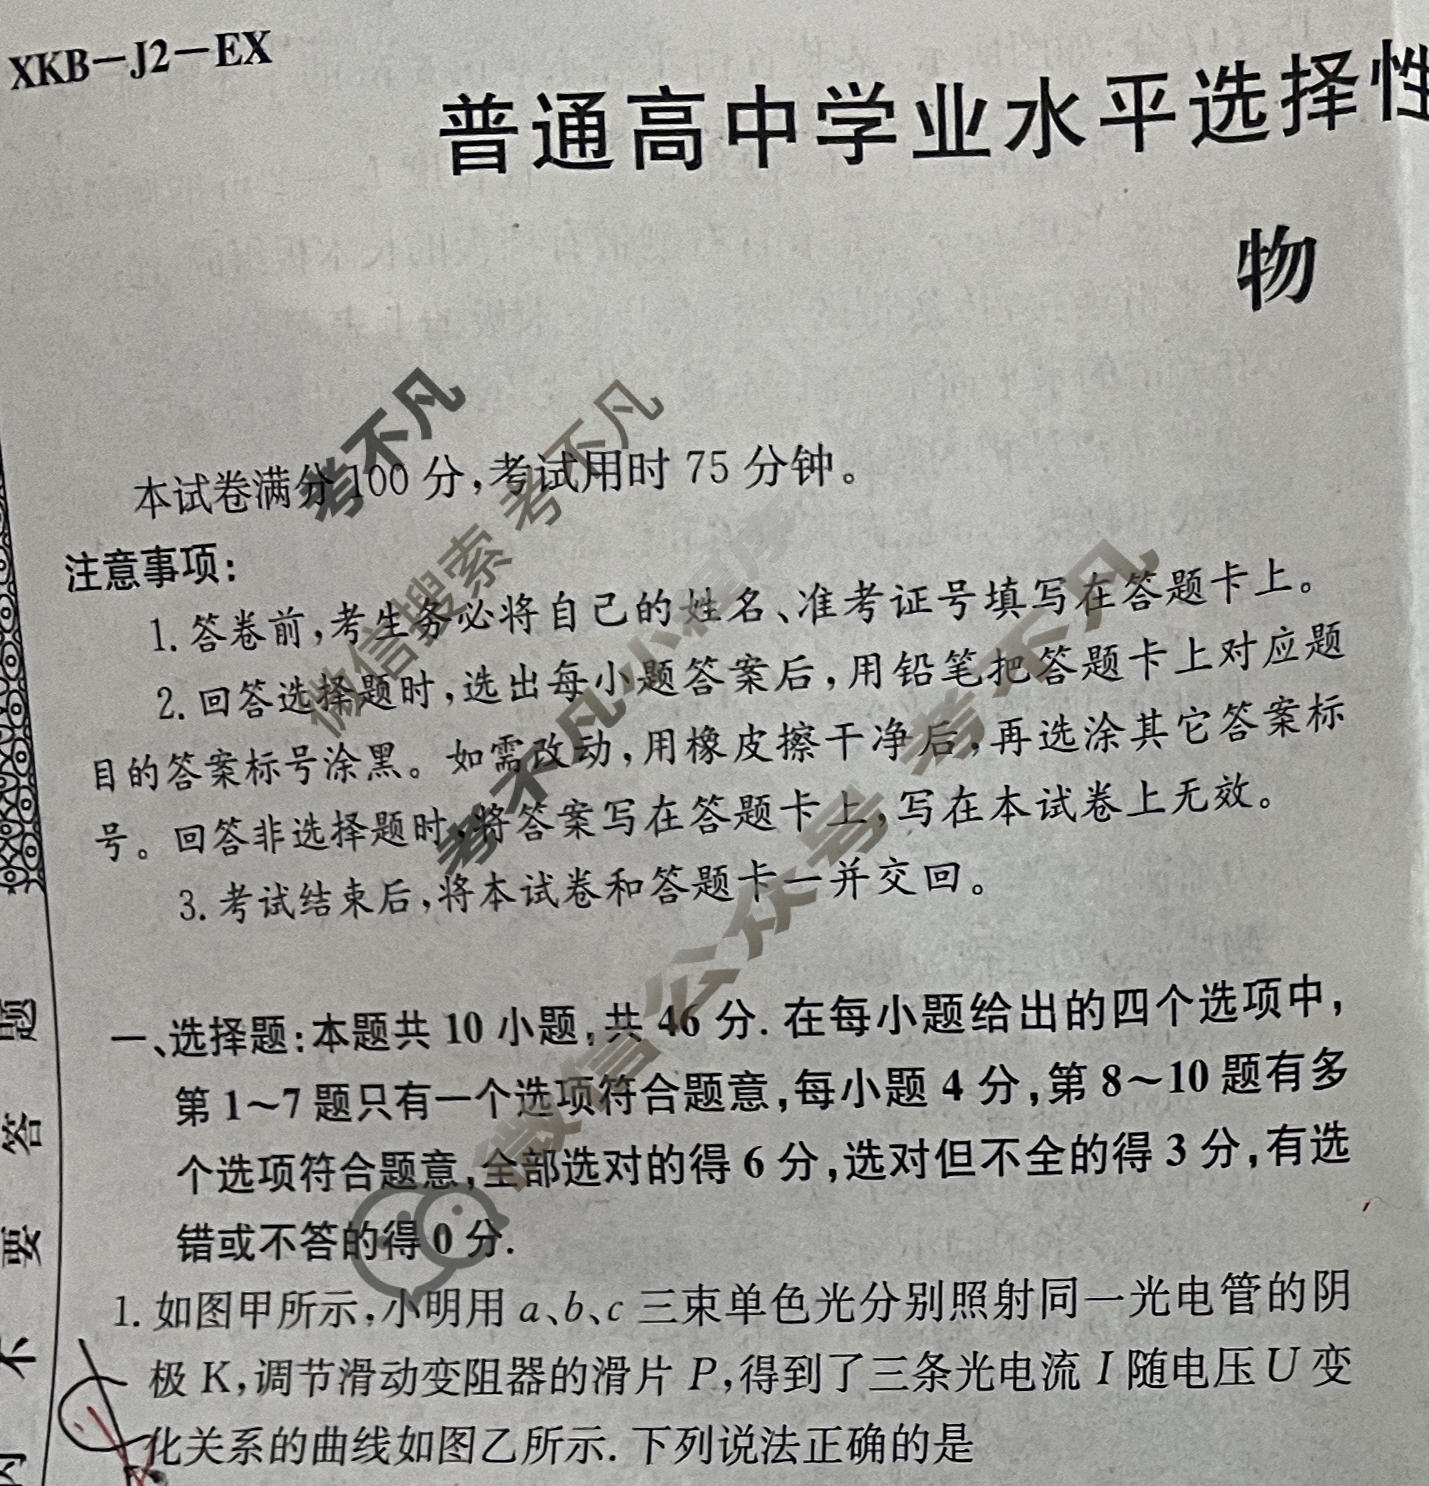 XKB-J2-EX
普通高中学业水平选择性
物
本试卷满分100分,考试用时75分钟。
注意事项:
1.答卷前,考生务必将自己的姓名、准考证号填写在答题卡上。
2.回答选择题时,选出每小题答案后,用铅笔把答题卡上对应题
目的答案标号涂黑。如需改动,用橡皮擦干净后,再选涂其它答案标
号。回答非选择题时,将答案写在答题卡上,写在本试卷上无效。
3.考试结束后,将本试卷和答题卡一并交回。
一、选择题:本题共10小题,共46分.在每小题给出的四个选项中,
第1~7题只有一个选项符合题意,每小题4分,第8~10题有多
个选项符合题意,全部选对的得6分,选对但不全的得3分,有选
错或不答的得0分.
1.如图甲所示,小明用a、b、c三束单色光分别照射同一光电管的阴
极K,调节滑动变阻器的滑片P,得到了三条光电流I随电压U变
化关系的曲线如图乙所示.下列说法正确的是
题
答
要
考不凡
微信搜索 考不凡
考不凡小程序
微信公众号 考不凡